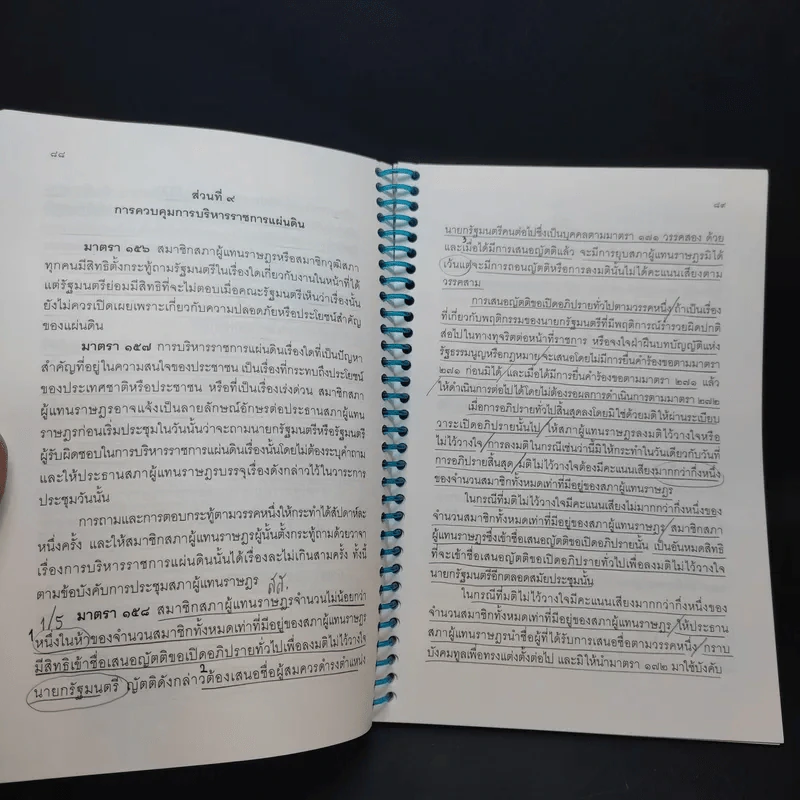 ๘๘
ส่วนที่ ๙
การควบคุมการบริหารราชการแผ่นดิน
มาตรา ๑๕๖ สมาชิกสภาผู้แทนราษฎรหรือสมาชิกวุฒิสภา
ทุกคนมีสิทธิตั้งกระทู้ถามรัฐมนตรีในเรื่องใดเกี่ยวกับงานในหน้าที่ได้
แต่รัฐมนตรีย่อมมีสิทธิที่จะไม่ตอบเมื่อคณะรัฐมนตรีเห็นว่าเรื่องนั้น
ยังไม่ควรเปิดเผยเพราะเกี่ยวกับความปลอดภัยหรือประโยชน์สำคัญ
ของแผ่นดิน
มาตรา ๑๕๗ การบริหารราชการแผ่นดินเรื่องใดที่เป็นปัญหา
สำคัญที่อยู่ในความสนใจของประชาชน เป็นเรื่องที่กระทบถึงประโยชน์
ของประเทศชาติหรือประชาชน หรือที่เป็นเรื่องเร่งด่วน สมาชิกสภา
ผู้แทนราษฎรอาจแจ้งเป็นลายลักษณ์อักษรต่อประธานสภาผู้แทน
ราษฎรก่อนเริ่มประชุมในวันนั้นว่าจะถามนายกรัฐมนตรีหรือรัฐมนตรี
ผู้รับผิดชอบในการบริหารราชการแผ่นดินเรื่องนั้นโดยไม่ต้องระบุคำถาม
และให้ประธานสภาผู้แทนราษฎรบรรจุเรื่องดังกล่าวไว้ในวาระการ
ประชุมวันนั้น
การถามและการตอบกระทู้ตามวรรคหนึ่งให้กระทำได้สัปดาห์ละ
หนึ่งครั้ง และให้สมาชิกสภาผู้แทนราษฎรผู้นั้นตั้งกระทู้ถามด้วยวาจา
เรื่องการบริหารราชการแผ่นดินนั้นได้เรื่องละไม่เกินสามครั้ง ทั้งนี้
ตามข้อบังคับการประชุมสภาผู้แทนราษฎร
1/5 มาตรา ๑๕๘ สมาชิกสภาผู้แทนราษฎรจำนวนไม่น้อยกว่า
1 หนึ่งในห้าของจำนวนสมาชิกทั้งหมดเท่าที่มีอยู่ของสภาผู้แทนราษฎร
มีสิทธิเข้าชื่อเสนอญัตติขอเปิดอภิปรายทั่วไปเพื่อลงมติไม่ไว้วางใจ
นายกรัฐมนตรี ญัตติดังกล่าว 2 ต้องเสนอชื่อผู้สมควรดำรงตำแหน่ง
๘๙
นายกรัฐมนตรีคนต่อไปซึ่งเป็นบุคคลตามมาตรา ๑๗๑ วรรคสอง ด้วย
และเมื่อได้มีการเสนอญัตติแล้ว จะมีการยุบสภาผู้แทนราษฎรมิได้
เว้นแต่จะมีการถอนญัตติหรือการลงมตินั้นไม่ได้คะแนนเสียงตาม
วรรคสาม
การเสนอญัตติขอเปิดอภิปรายทั่วไปตามวรรคหนึ่ง ถ้าเป็นเรื่อง
ที่เกี่ยวกับพฤติกรรมของนายกรัฐมนตรีที่มีพฤติการณ์ร่ำรวยผิดปกติ
ส่อไปในทางทุจริตต่อหน้าที่ราชการ หรือจงใจฝ่าฝืนบทบัญญัติแห่ง
รัฐธรรมนูญหรือกฎหมาย จะเสนอโดยไม่มีการยื่นคำร้องขอตามมาตรา
๒๗๑ ก่อนมิได้ และเมื่อได้มีการยื่นคำร้องขอตามมาตรา ๒๗๑ แล้ว
ให้ดำเนินการต่อไปได้โดยไม่ต้องรอผลการดำเนินการตามมาตรา ๒๗๒
เมื่อการอภิปรายทั่วไปสิ้นสุดลงโดยมิใช่ด้วยมติให้ผ่านระเบียบ
วาระเปิดอภิปรายนั้นไป ให้สภาผู้แทนราษฎรลงมติไว้วางใจหรือ
ไม่ไว้วางใจ การลงมติในกรณีเช่นว่านี้มิให้กระทำในวันเดียวกับวันที่
การอภิปรายสิ้นสุด มติไม่ไว้วางใจต้องมีคะแนนเสียงมากกว่ากึ่งหนึ่ง
ของจำนวนสมาชิกทั้งหมดเท่าที่มีอยู่ของสภาผู้แทนราษฎร
ในกรณีที่มติไม่ไว้วางใจมีคะแนนเสียงไม่มากกว่ากึ่งหนึ่งของ
จำนวนสมาชิกทั้งหมดเท่าที่มีอยู่ของสภาผู้แทนราษฎร สมาชิกสภา
ผู้แทนราษฎรซึ่งเข้าชื่อเสนอญัตติขอเปิดอภิปรายนั้น เป็นอันหมดสิทธิ
ที่จะเข้าชื่อเสนอญัตติขอเปิดอภิปรายทั่วไปเพื่อลงมติไม่ไว้วางใจ
นายกรัฐมนตรีอีกตลอดสมัยประชุมนั้น
ในกรณีที่มติไม่ไว้วางใจมีคะแนนเสียงมากกว่ากึ่งหนึ่งของ
จำนวนสมาชิกทั้งหมดเท่าที่มีอยู่ของสภาผู้แทนราษฎร ให้ประธาน
สภาผู้แทนราษฎรนำชื่อผู้ที่ได้รับการเสนอชื่อตามวรรคหนึ่ง กราบ
บังคมทูลเพื่อทรงแต่งตั้งต่อไป และมิให้นำมาตรา ๑๗๒ มาใช้บังคับ